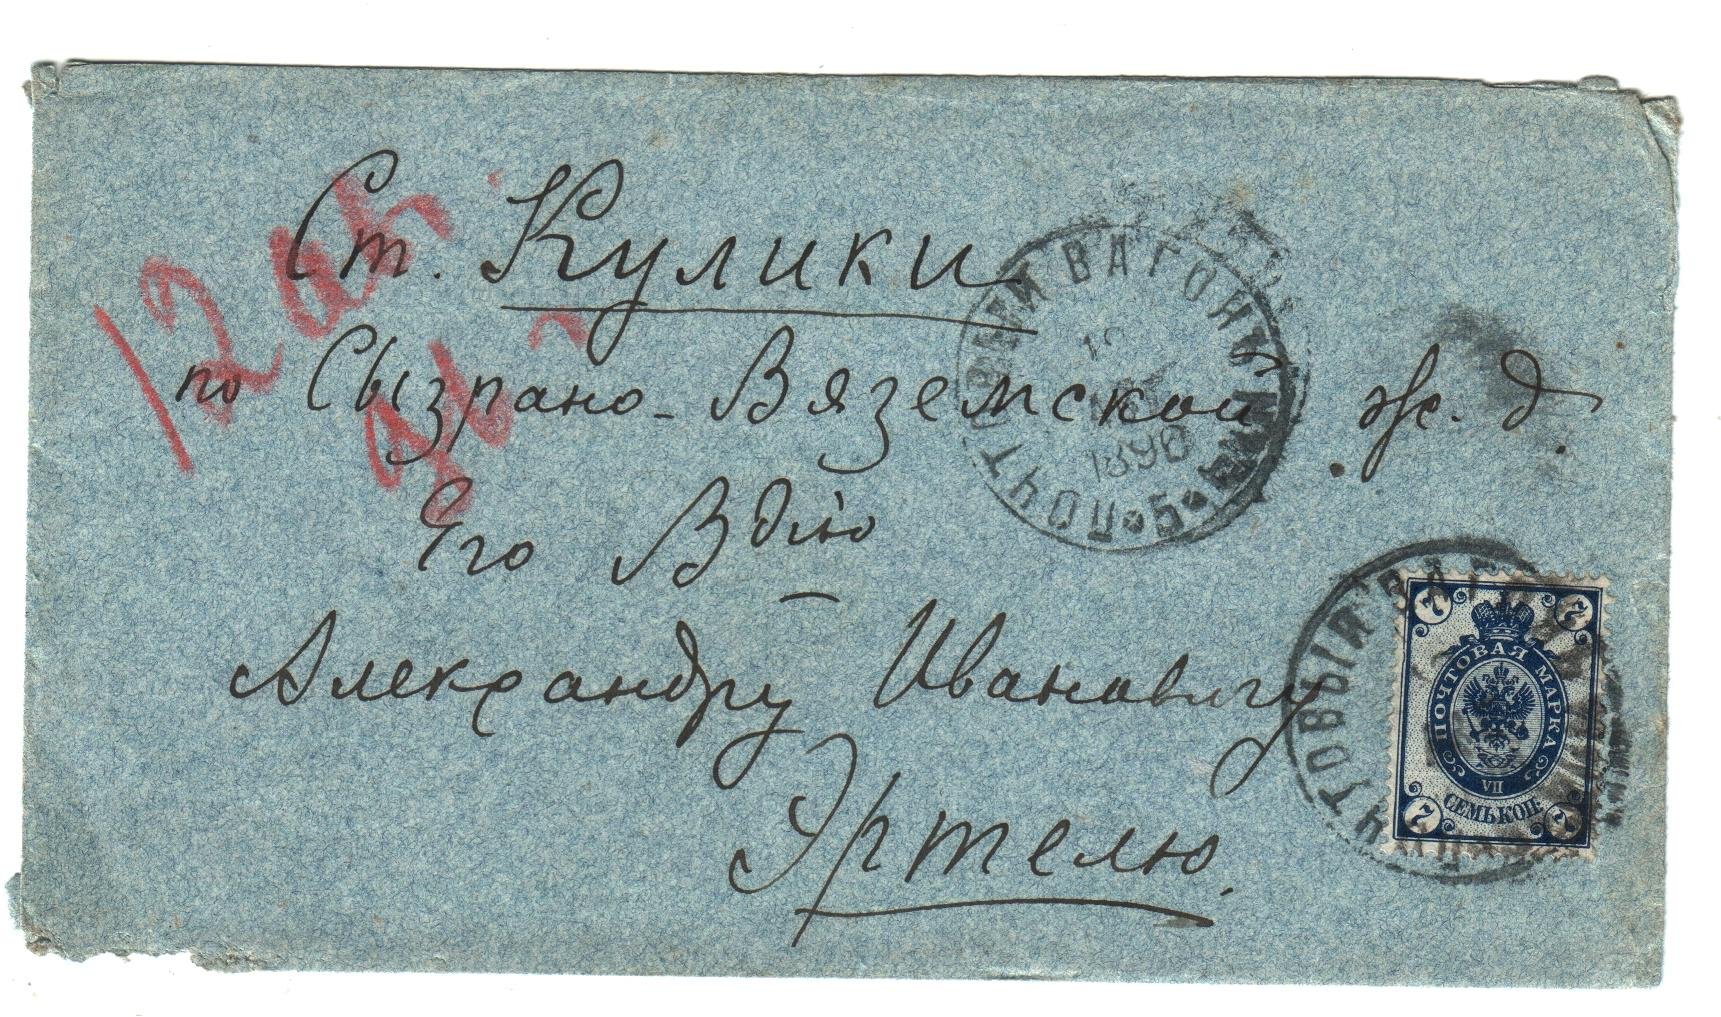 Ст. Кулики
по Сызрано-Вяземской ж. д.
Его Вдію
Александру Ивановичу
Эртелю.
12
ПОЧТОВЫЙ ВАГОНЪ
5
ПОЧТОВАЯ МАРКА
VII
СЕМЬ КОП.
7
7
7
7